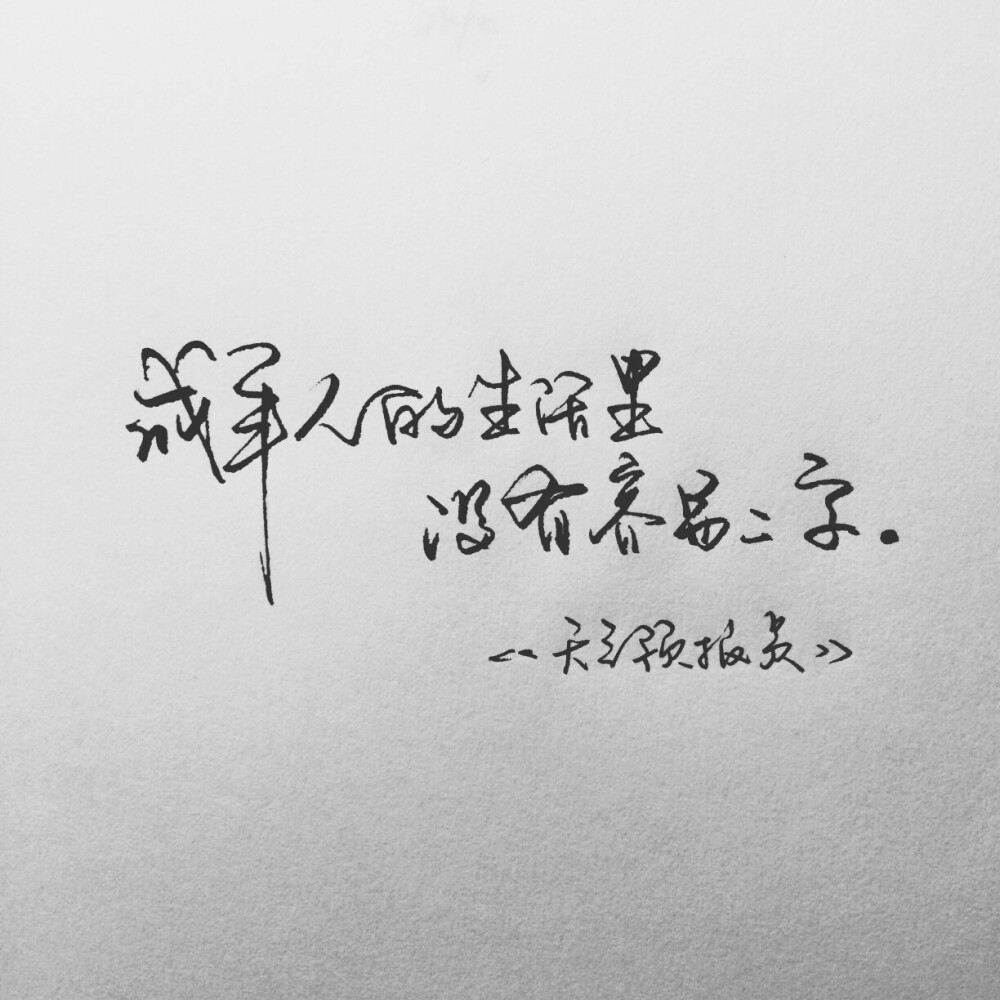 成年人的生活里
没有容易二字.
《天气预报员》